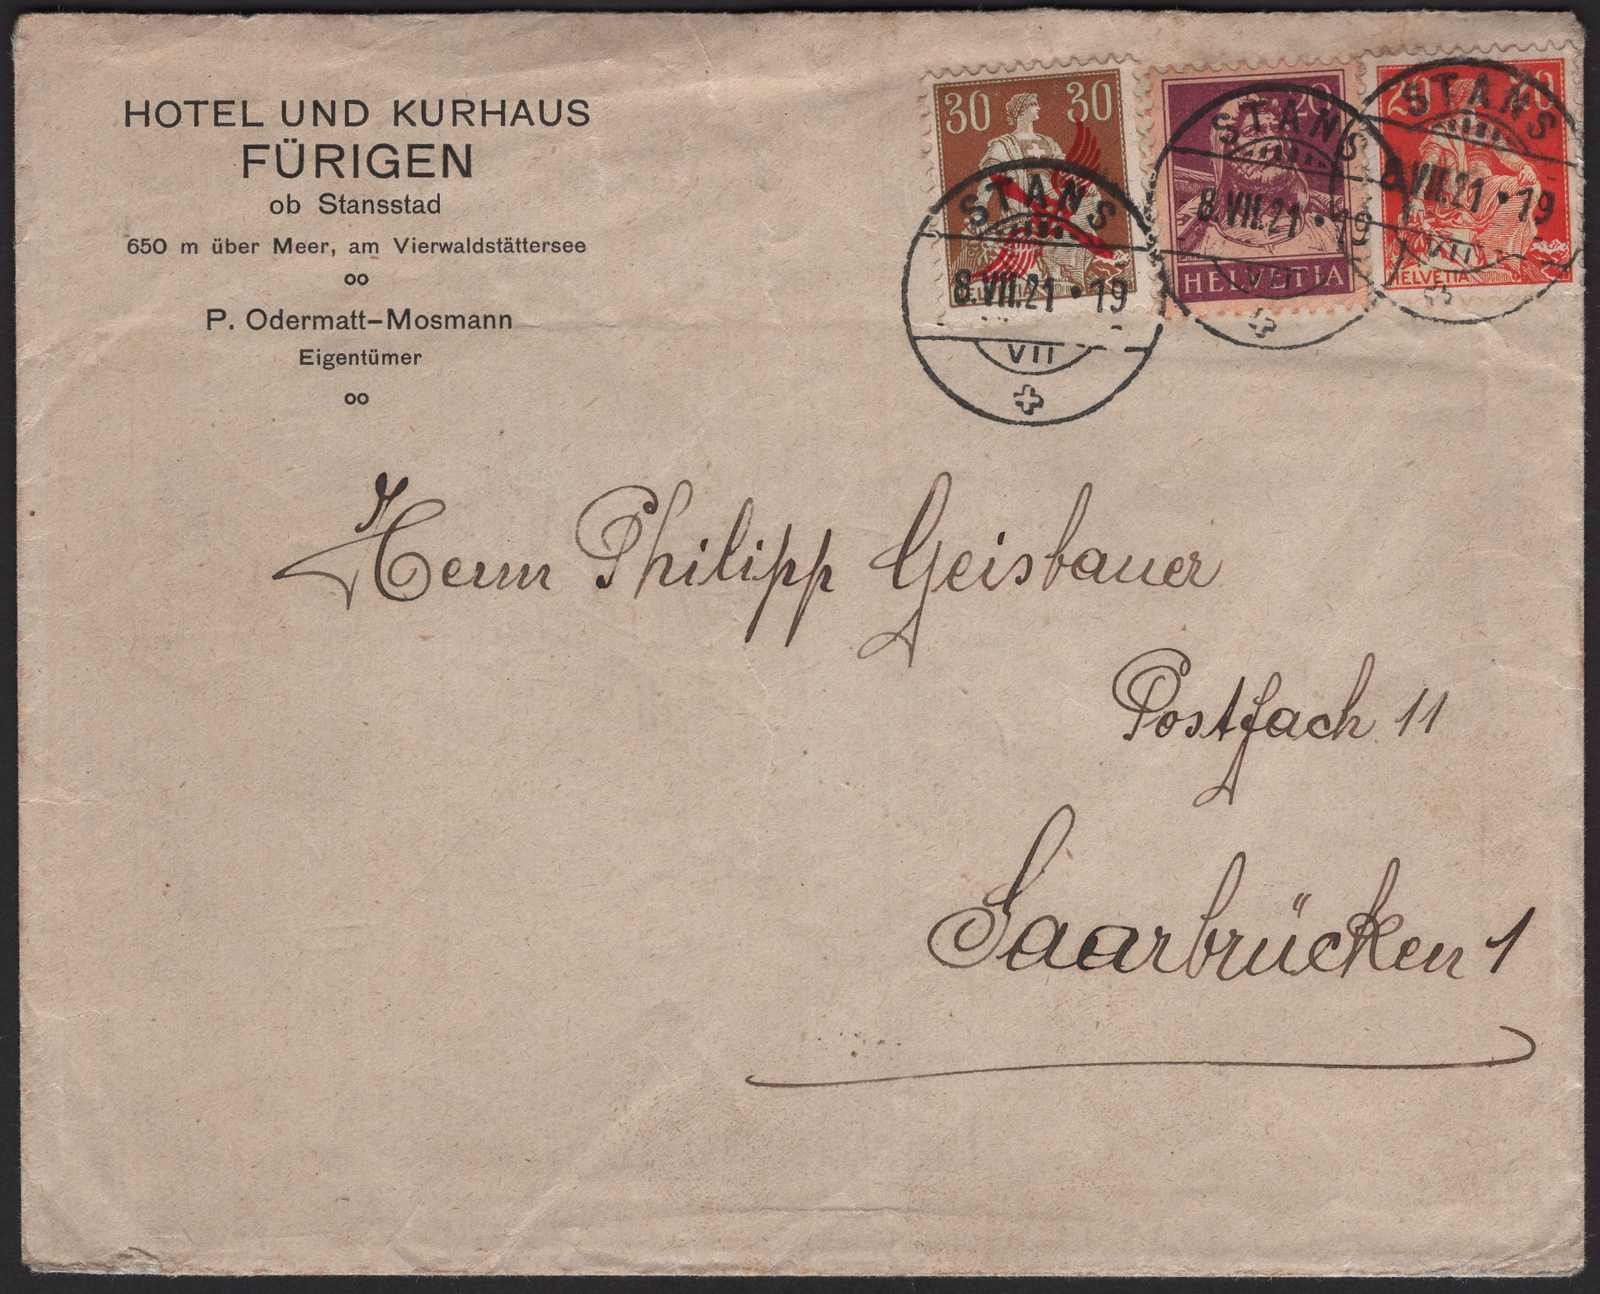 HOTEL UND KURHAUS
FÜRIGEN
ob Stansstad
650 m über Meer, am Vierwaldstättersee
oo
P. Odermatt-Mosmann
Eigentümer
oo
30 30
20
20 20
HELVETIA
HELVETIA
HELVETIA
STANS
8.VII.21·19
VII
STANS
8.VII.21·19
VII
STANS
8.VII.21·19
VII
Herrn Philipp Geisbauer
Postfach 11
Saarbrücken 1